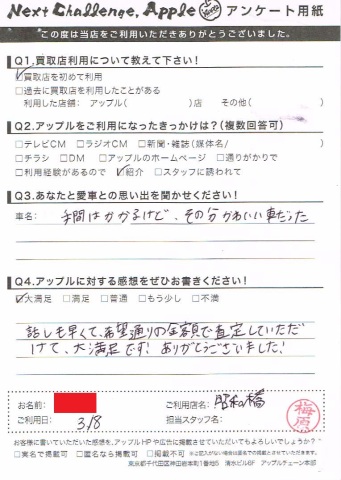 Next Challenge, Apple アンケート用紙
この度は当店をご利用いただきありがとうございました。
Q1.買取店利用について教えて下さい!
☑買取店を初めて利用
□過去に買取店を利用したことがある
利用した店舗: アップル( )店 その他( )
Q2.アップルをご利用になったきっかけは?(複数回答可)
□テレビCM □ラジオCM □新聞・雑誌(媒体名/ )
□チラシ □DM □アップルのホームページ □通りがかりで
□利用経験があるので ☑紹介 □スタッフに誘われて
Q3.あなたと愛車との思い出を聞かせください!
車名: 手間はかかるけど、その分かわいい車だった
Q4.アップルに対する感想をぜひお書きください!
☑大満足 □満足 □普通 □もう少し □不満
話しも早くて、希望通りの金額で査定していただ
けて、大満足です! ありがとうございました!
お名前:
ご利用店名: 昭和橋
ご利用日: 3/8
担当スタッフ名: 梅原
お客様に書いていただいた感想を、アップルHPや広告に掲載させていただいてもよろしいでしょうか?
□実名で掲載可 □匿名なら掲載可 □掲載不可 ※ご記入がない場合は匿名での掲載とさせていただきます。
東京都千代田区神田岩本町1番地5 清水ビル6F アップルチェーン本部